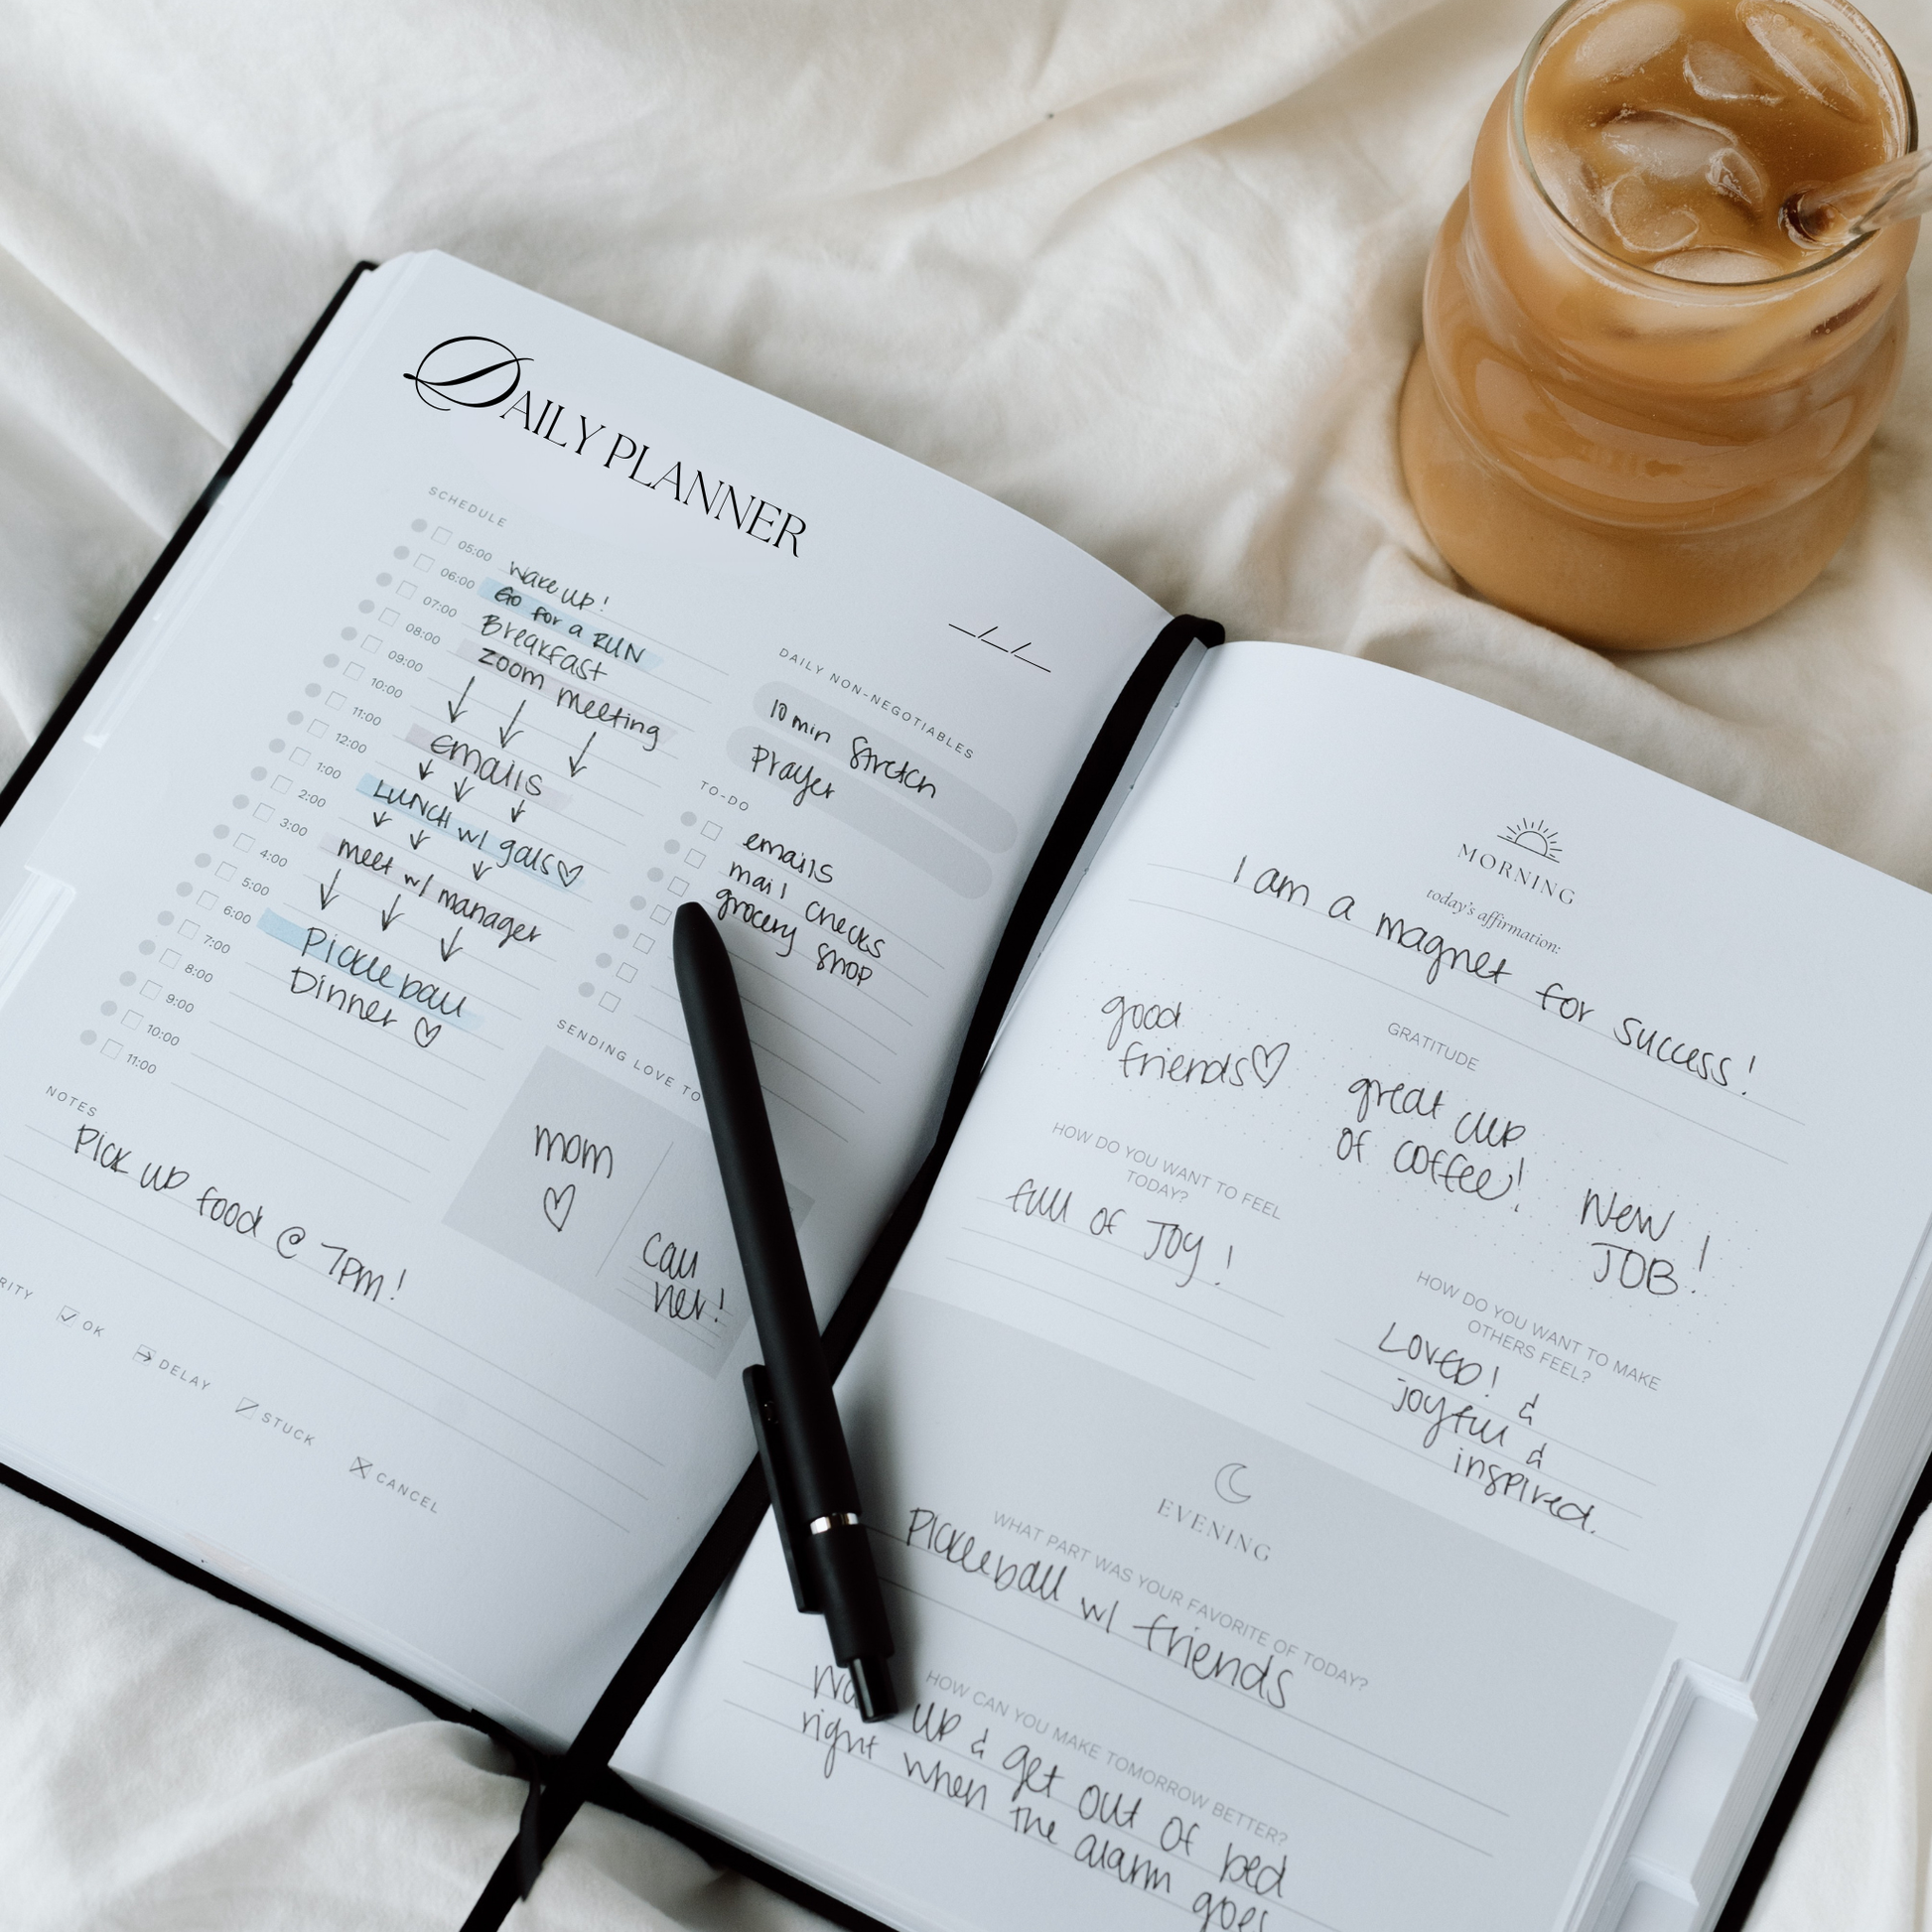 DAILY PLANNER
SCHEDULE
05:00 wake up!
06:00 Go for a RUN
07:00 Breakfast
08:00 zoom meeting
09:00
10:00
11:00 emails
12:00
1:00 LUNCH w/ gals♡
2:00
3:00 meet w/ manager
4:00
5:00
6:00 Pickleball
7:00 Dinner ♡
8:00
9:00
10:00
11:00
DAILY NON-NEGOTIABLES
10 min Stretch
Prayer
TO-DO
emails
mail checks
grocery shop
SENDING LOVE TO
mom
♡
call
her!
NOTES
Pick up food @ 7pm!
RITY
OK
DELAY
STUCK
CANCEL
MORNING
today's affirmation:
I am a magnet for success!
GRATITUDE
good
friends♡
great cup
of coffee!
New
JOB!
HOW DO YOU WANT TO FEEL
TODAY?
full of JOY!
HOW DO YOU WANT TO MAKE
OTHERS FEEL?
LOVED! &
joyful &
inspired.
EVENING
WHAT PART WAS YOUR FAVORITE OF TODAY?
Pickleball w/ friends
HOW CAN YOU MAKE TOMORROW BETTER?
up & get out of bed
right when the alarm goes